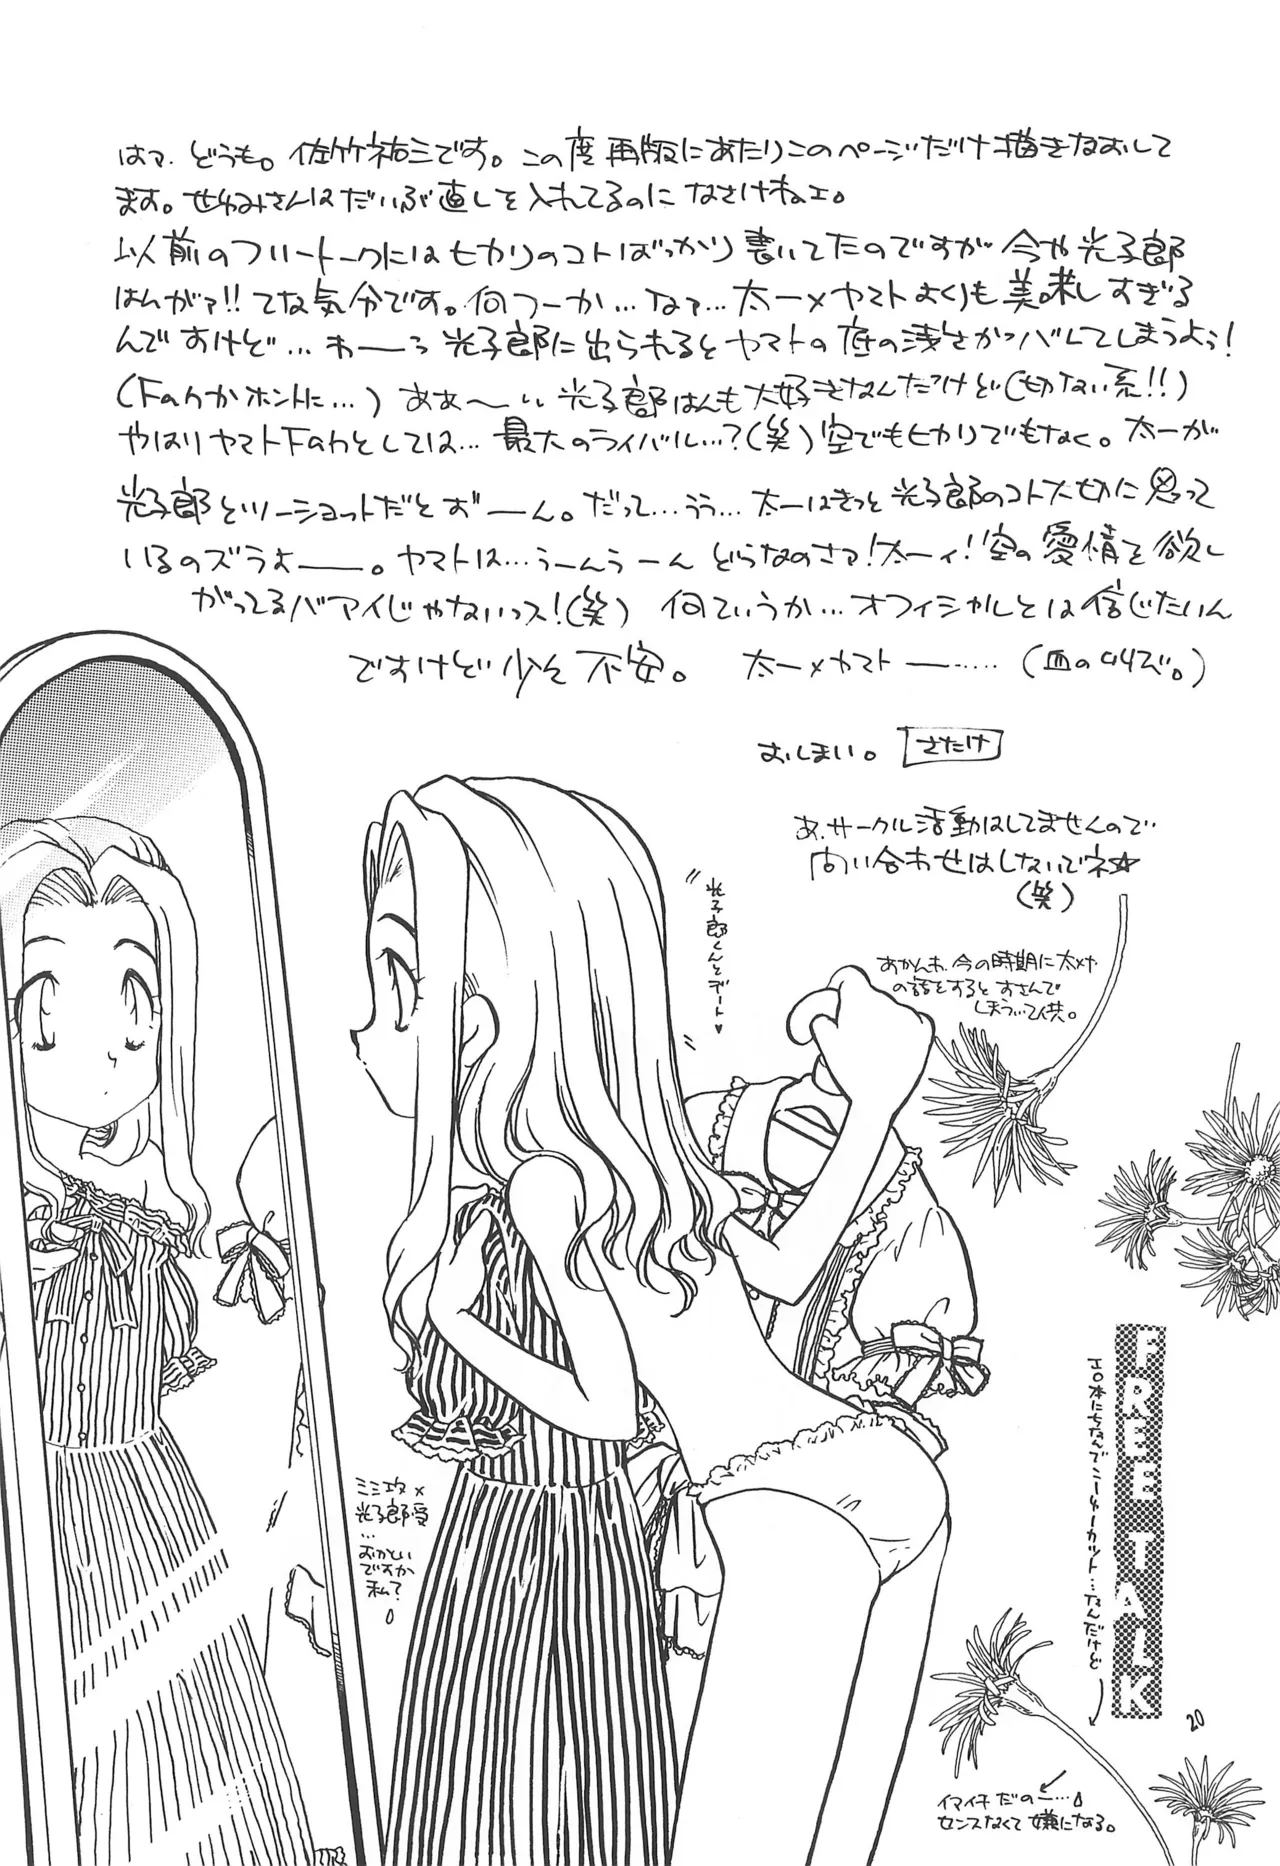 はァ、どうも。佐竹祐三です。この度再版にあたりこのページだけ描きなおして
ます。せゆみさんはだいぶ直しを入れてるのに なさけねェ。
以前のフリートークにはヒカリのコトばっかり書いてたのですが 今や光子郎
はんがァ!! てな気分です。何つーか…なァ…太一×ヤマトよりも美味しすぎる
んですけど…わーっ 光子郎に出られるとヤマトの底の浅さがバレてしまうよぅ!
ホントに…) ああ〜い 光子郎はんも大好きなんだけど(切ない系!!)
やはりヤマト下のわとしては…最大のライバル…?(笑) 空でもヒカリでもなく。太一が
光子郎とツーショットだとずーん。だって…うぅ…太一はきっと光子郎のコト大切に思って
いるのズラよー。ヤマトは…うーんうーん どうなのさァ!太一ィ!空の愛情を欲し
がってるバアイじゃないっス!(笑) 何ていうか…オフィシャルとは信じたいん
ですけど少々不安。 太一×ヤマトー……(血の叫び。)
おしまい。 さたけ
あ、サークル活動はしてませんので
問い合わせはしないでネ☆
(笑)
光子郎くんとデート♥
あかんわ、今の時期に太ヤ
の話をすると すさんで
しまう
ミミ攻×
光子郎受
…
おかしい
ですか
私?
FREE TALK
エロ本にちなんでこーゆーカット…なんだけど
イマイチだのー…
センスなくて嫌になる。
20